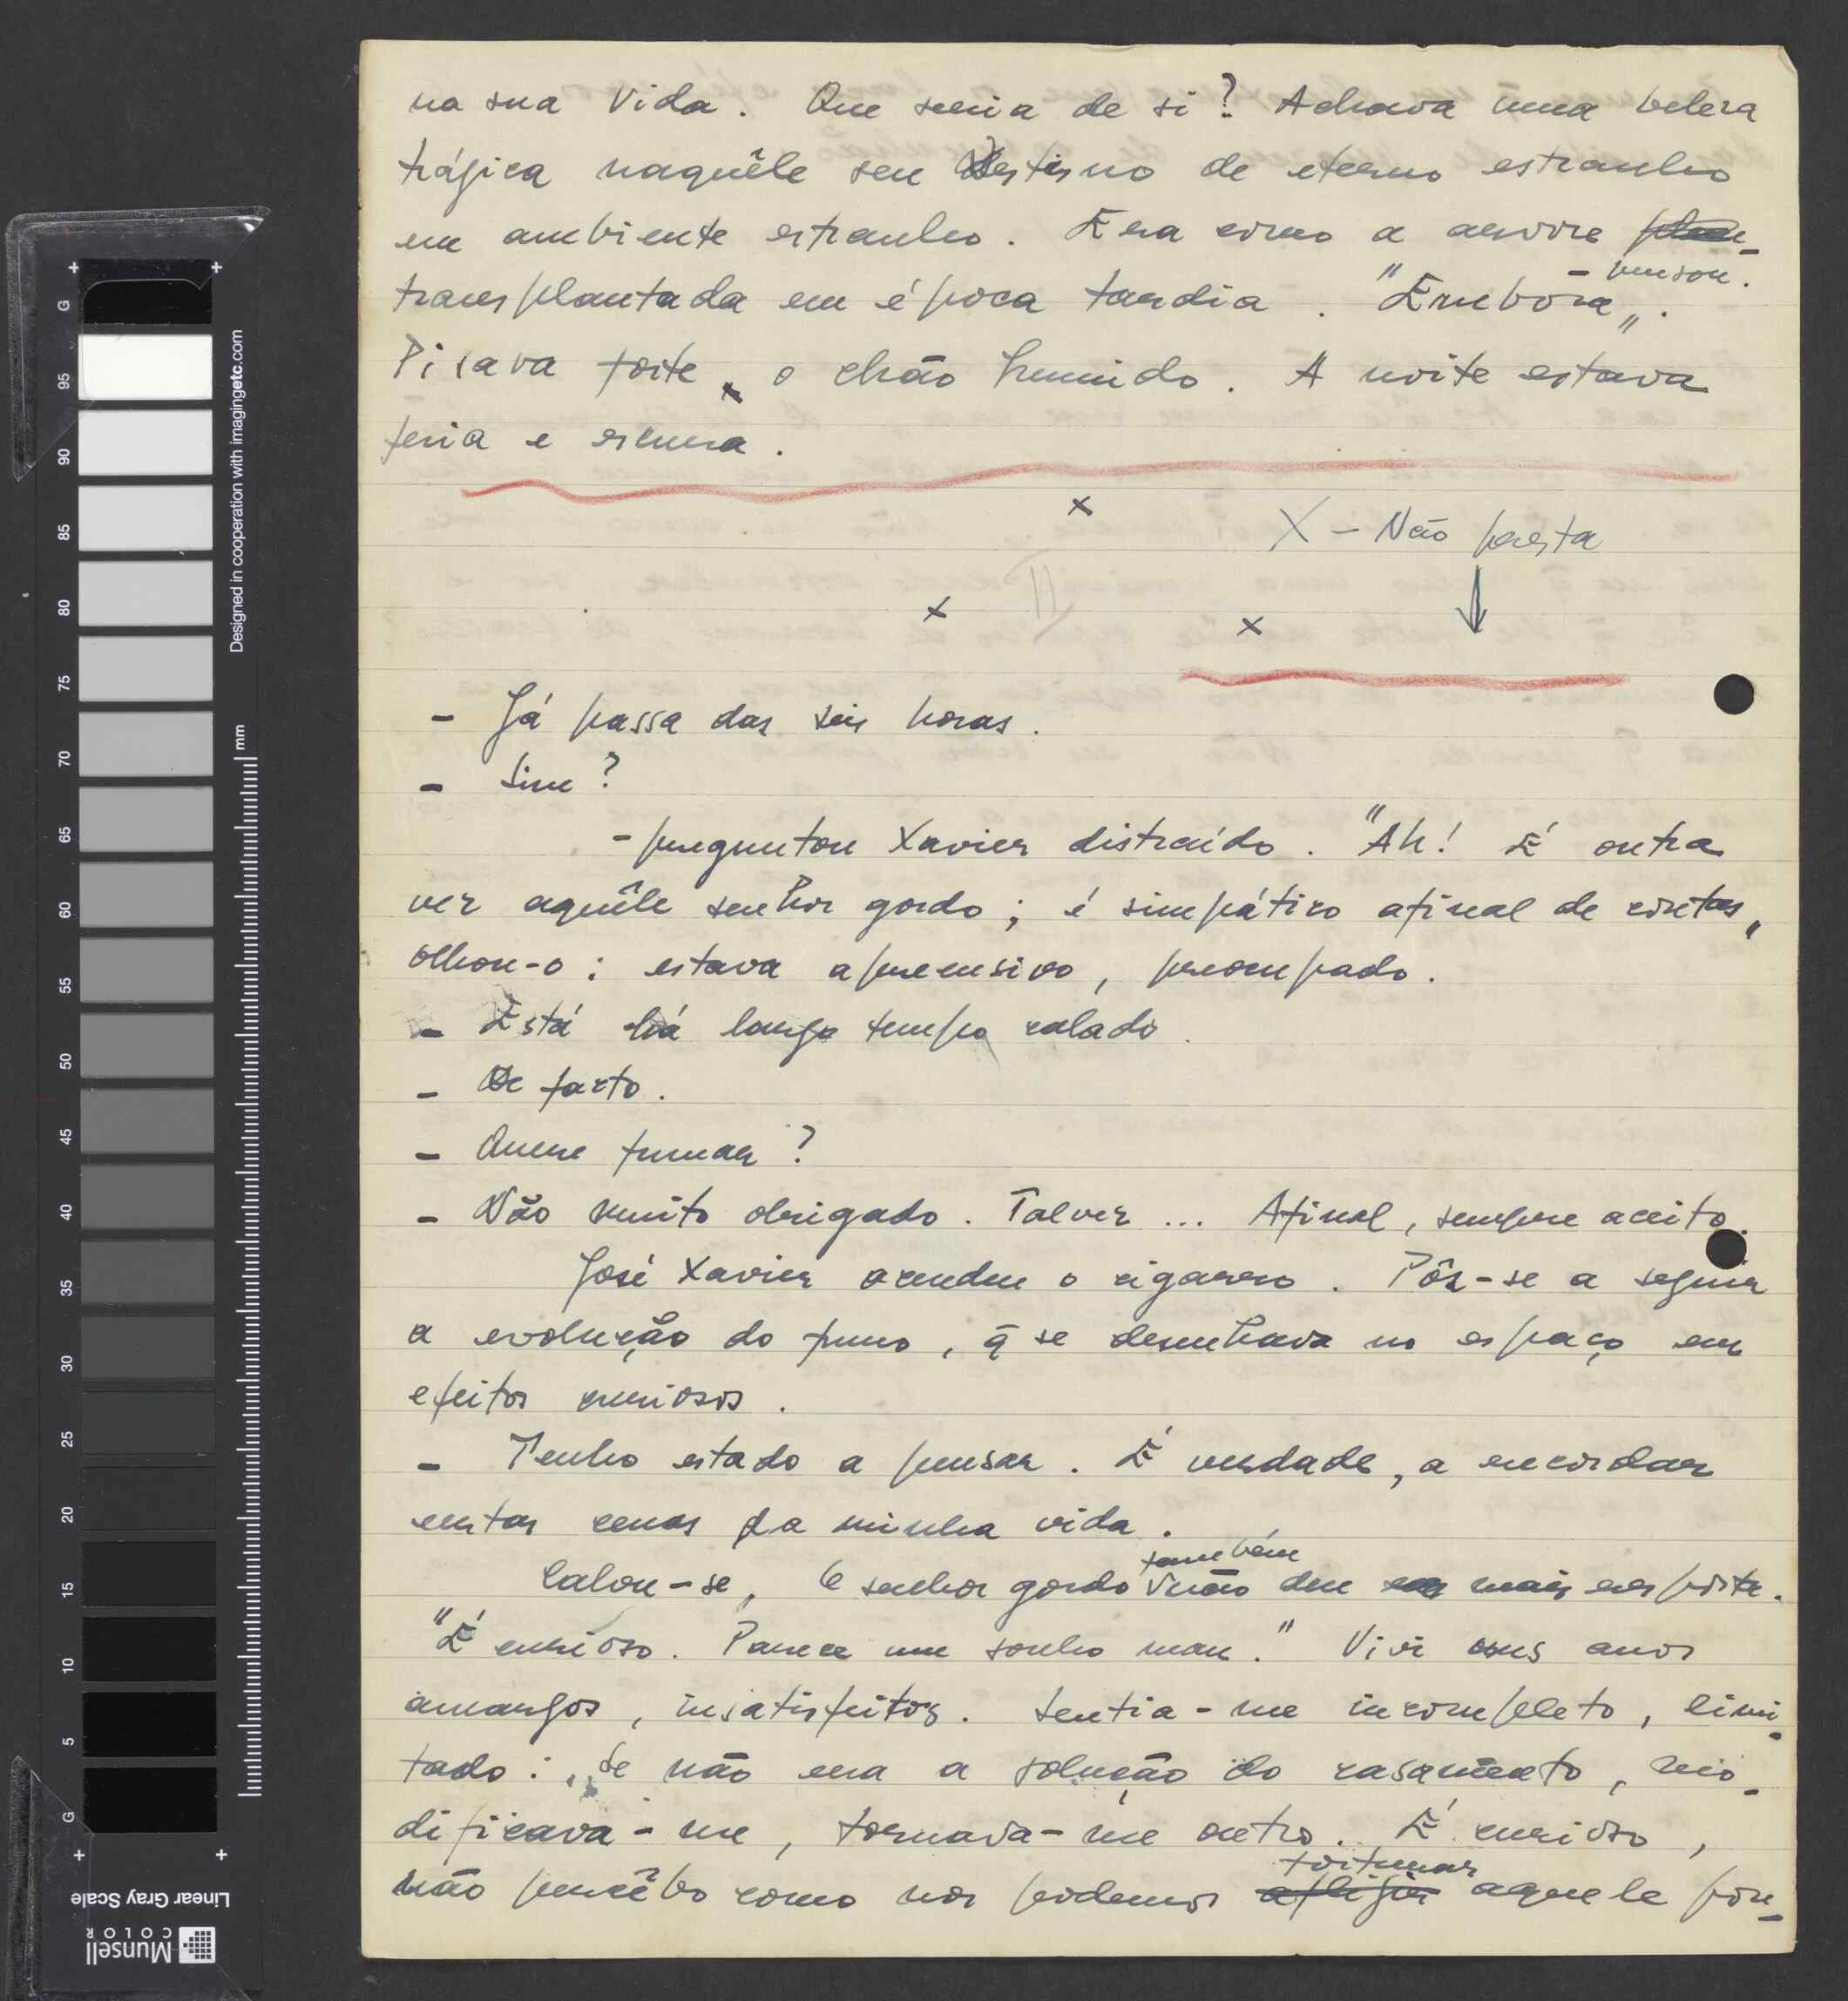 na sua vida. Que seria de si? Achava uma beleza
trágica naquêle seu destino de eterno estranho
em ambiente estranho. Era como a arvore
transplantada em época tardia. "Embora„ - pensou.
Pisava forte o chão humido. A noite estava
fria e escura.
x
X - Não presta
x x
- Já passa das seis horas.
- Sim?
- perguntou Xavier distraído. "Ah! É outra
vez aquêle senhor gordo; é simpático afinal de contas„
olhou-o: estava apreensivo, preocupado.
- Está há longo tempo calado.
- De facto.
- Quere fumar?
- Não muito obrigado. Talvez ... Afinal, sempre aceito.
José Xavier acendeu o cigarro. Pôz-se a seguir
a evolução do fumo, q̃ se desenhava no espaço em
efeitos curiosos.
- Tenho estado a pensar. É verdade, a recordar
certas cenas da minha vida.
Calou-se, O senhor gordo também não deu mais resposta.
"É curioso. Parece um sonho mau." Vivi uns anos
amargos, insatisfeitos. Sentia-me incompleto, limi-
tado: Se não era a solução do casamento, mo-
dificava-me, tornava-me outro. É curioso,
não percêbo como nos podemos afligir torturar aquele pon-
Designed in cooperation with imagingetc.com
mm
G 95 90 85 80 75 70 65 60 55 50 45 40 35 30 25 20 15 10 5 G
Linear Gray Scale
Munsell
COLOR